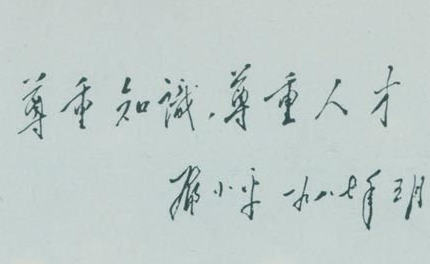 尊重知識，尊重人才
邓小平 一九八七年五月